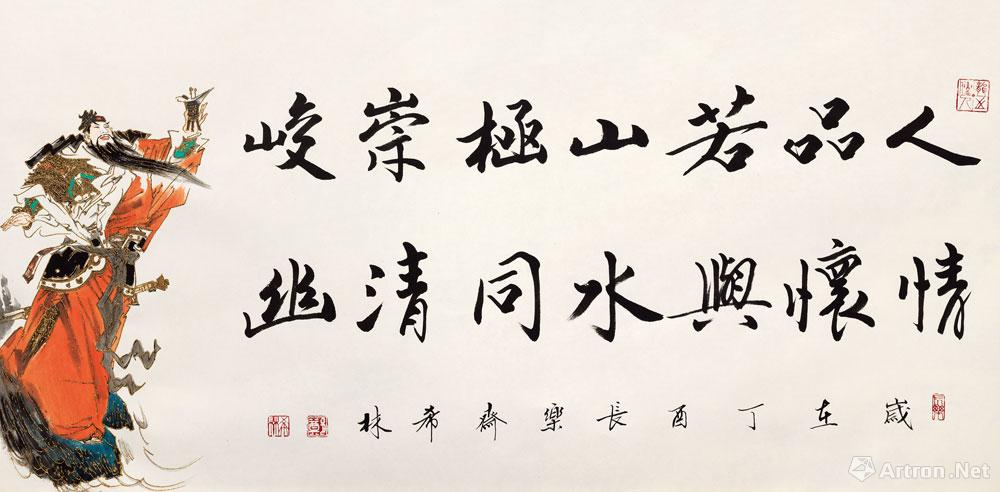 人品若山極崇峻
情懷與水同清幽
歲在丁酉長樂齋希林
Artron.Net